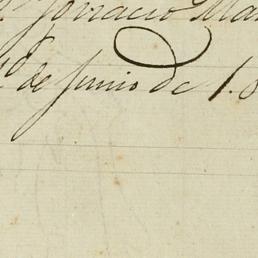 Ygnacio Ma
de Junio de 18